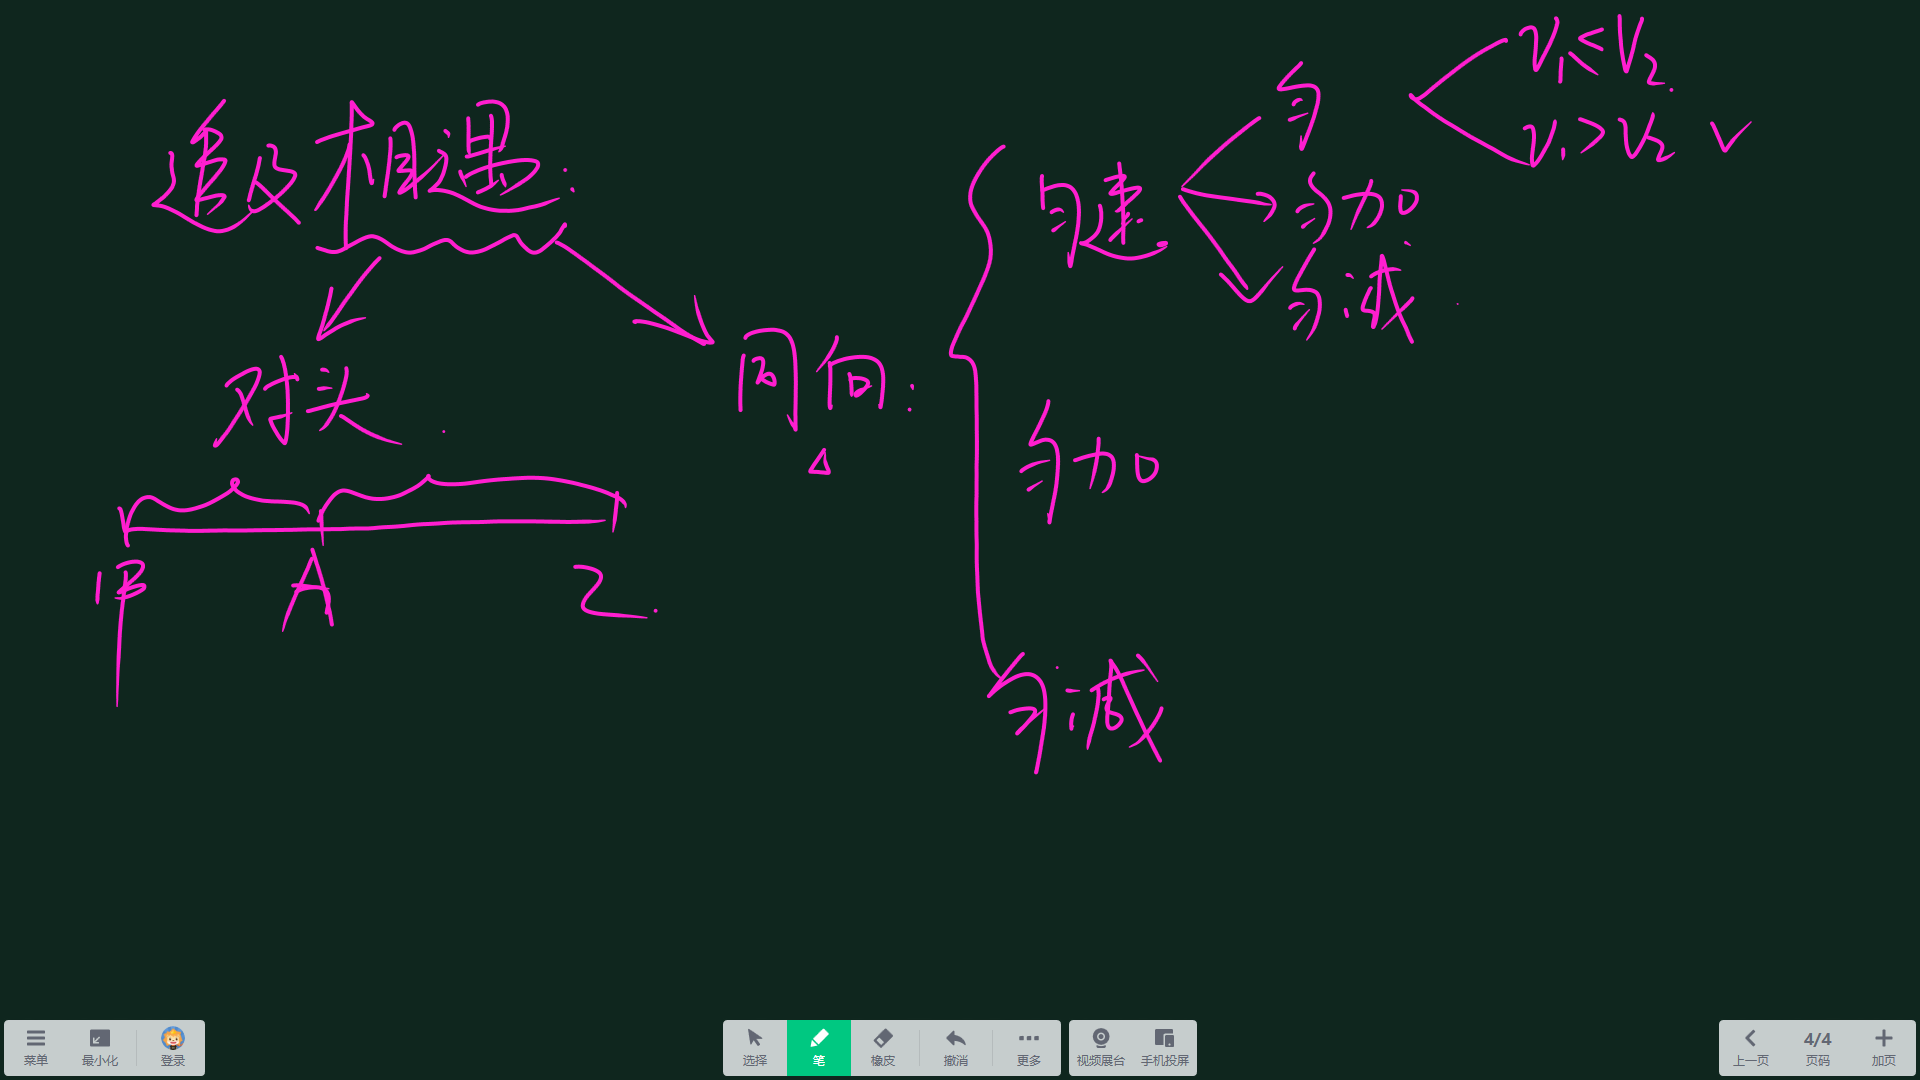 追及相遇:
对头.
甲 A 乙.
同向:
匀速
匀
V₁<V₂.
V₁>V₂ ✓
匀加
匀减
匀加
匀减
菜单 最小化 登录
选择 笔 橡皮 撤消 更多
视频展台 手机投屏
上一页 4/4 页码 加页